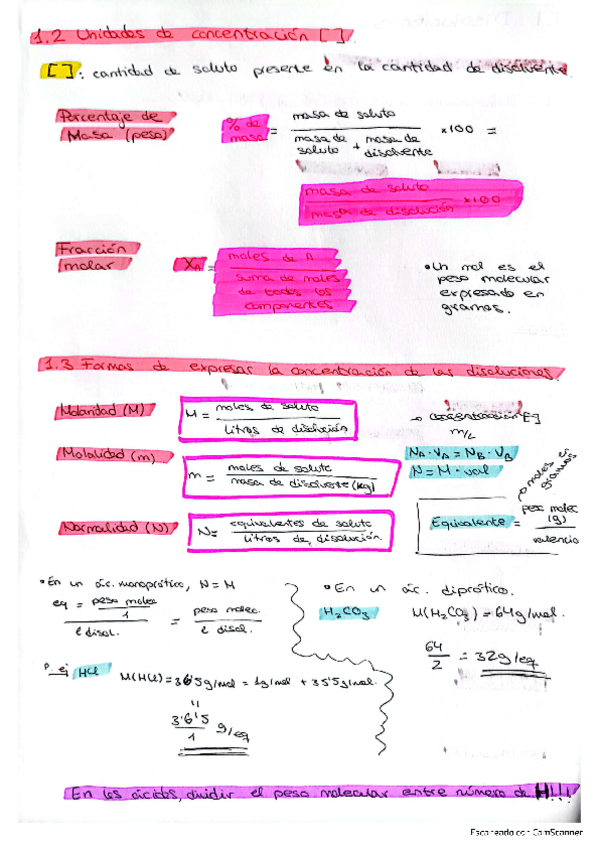 1.2 Unidades de concentración [ ].
[ ]: cantidad de soluto presente en la cantidad de disolvente.
Porcentaje de
Masa (peso)
% de
masa
=
masa de soluto
masa de soluto + masa de disolvente
×100 =
masa de soluto
masa de disolución
×100
Fracción
molar
XA =
moles de A
suma de moles
de todos los
componentes
• Un mol es el
peso molecular
expresado en
gramos.
1.3 Formas de expresar la concentración de las disoluciones.
Molaridad (M)
M = moles de soluto
litros de disolución
→ concentración [ ]
m/L
Molalidad (m)
m = moles de soluto
masa de disolvente (kg)
NA · VA = NB · VB
N = M · val
→ moles es gramos
Normalidad (N)
N = equivalentes de soluto
litros de disolución
Equivalente = peso molec (g)
valencia
• En un ác. monoprótico, N = M
eq = peso molec
1
l disol.
= peso molec.
l disol.
• En un ác. diprótico.
H2CO3
M(H2CO3) = 64g/mol.
64
2
= 32g/eq
p. ej HCl
M(HCl) = 36'5g/mol = 1g/mol + 35'5g/mol.
"
3'6'5
1
g/eq
En los ácidos, dividir el peso molecular entre número de H!!!
Escaneado con CamScanner